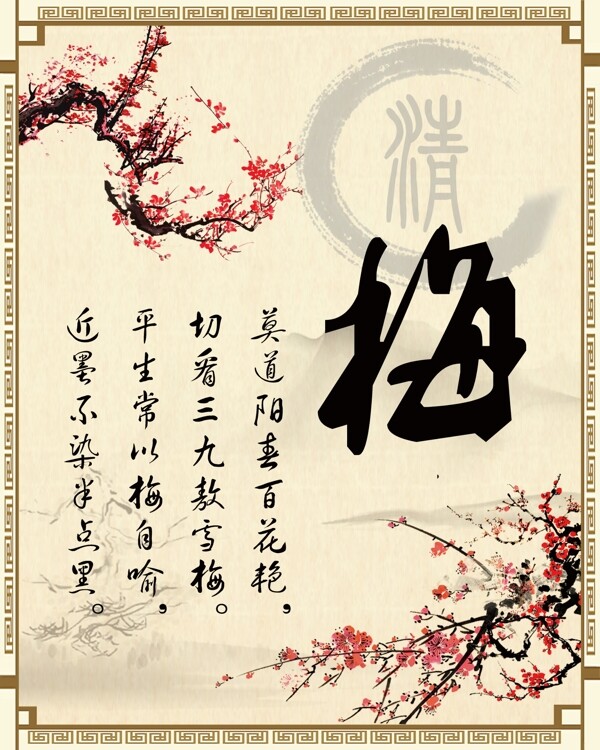 清
梅
莫道阳春百花艳，
切看三九敖雪梅。
平生常以梅自喻，
近墨不染半点黑。